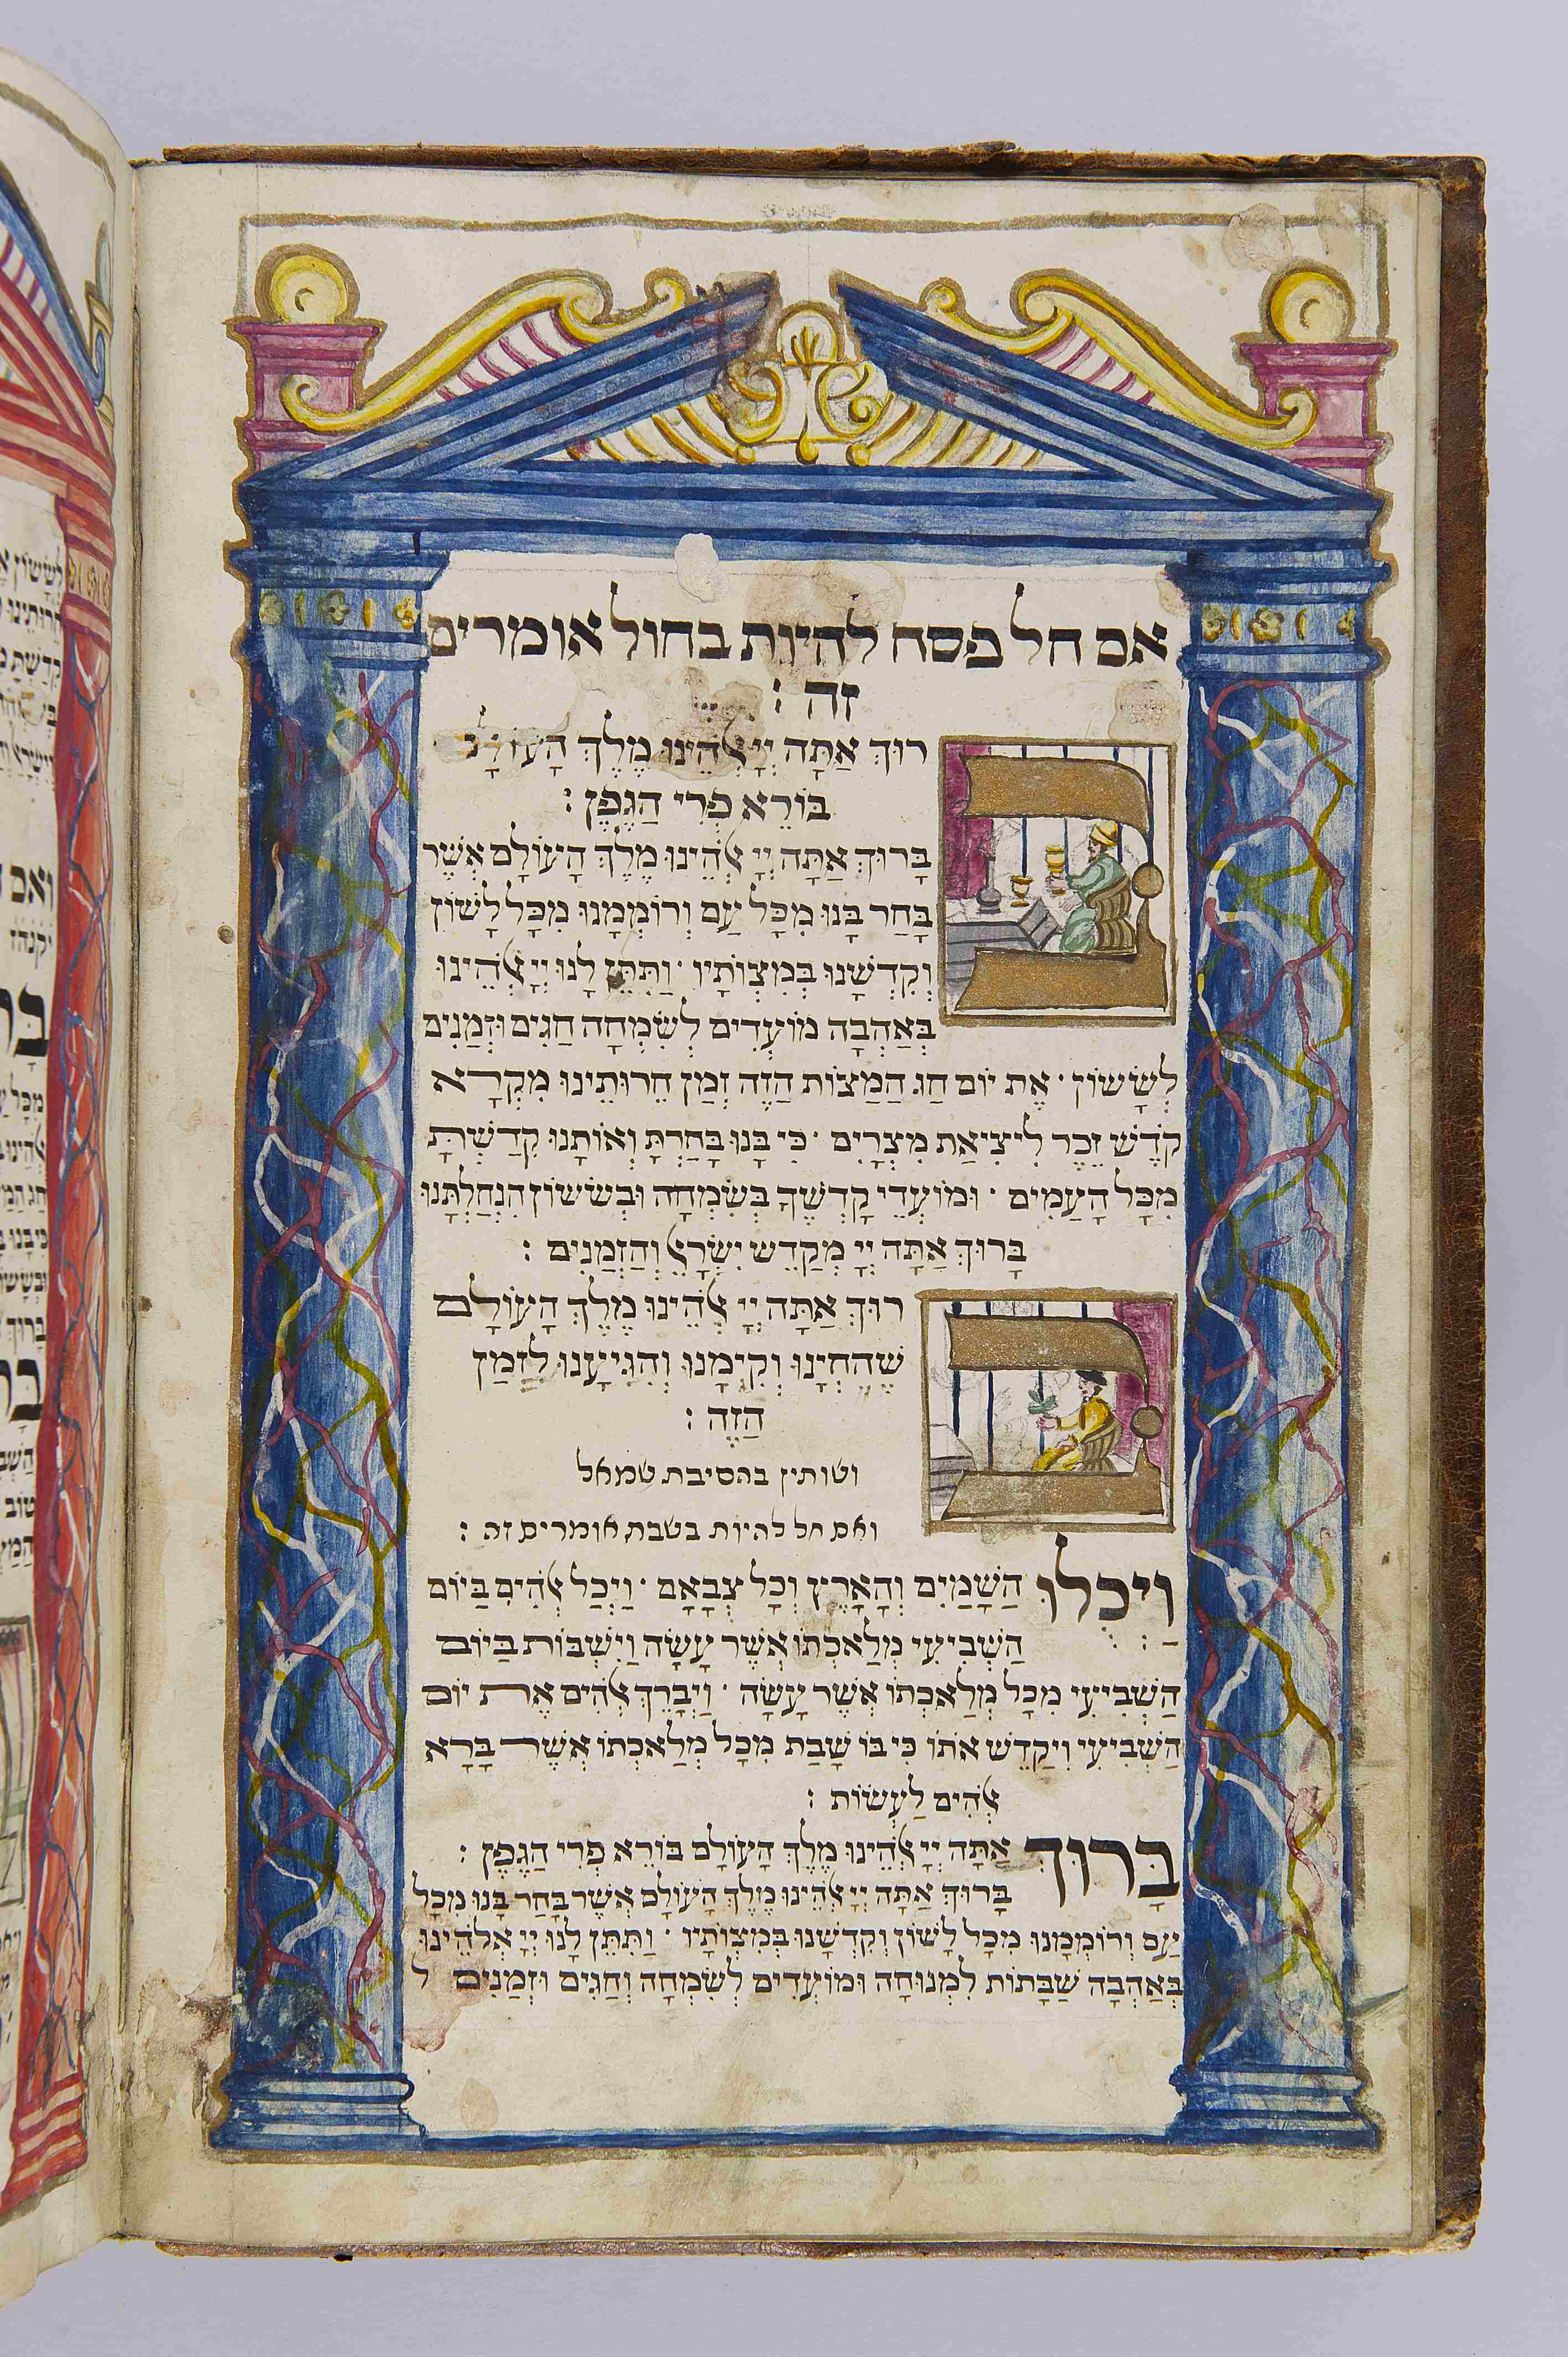 אם חל פסח להיות בחול אומרים
זה :
בָּרוּךְ אַתָּה יְיָ אֱלֹהֵינוּ מֶלֶךְ הָעוֹלָם
בּוֹרֵא פְרִי הַגֶפֶן :
בָּרוּךְ אַתָּה יְיָ אֱלֹהֵינוּ מֶלֶךְ הָעוֹלָם אֲשֶׁר
בָּחַר בָּנוּ מִכָּל עַם וְרוֹמְמָנוּ מִכָּל לָשׁוֹן
וְקִדְשָׁנוּ בְּמִצְוֹתָיו · וַתִּתֵּן לָנוּ יְיָ אֱלֹהֵינוּ
בְּאַהֲבָה מוֹעֲדִים לְשִׂמְחָה חַגִים וּזְמַנִים
לְשָׂשׂוֹן · אֶת יוֹם חַג הַמַצוֹת הַזֶה זְמַן חֵרוּתֵינוּ מִקְרָא
קֹדֶשׁ זֵכֶר לִיצִיאַת מִצְרָיִם · כִּי בָנוּ בָּחַרְתָּ וְאוֹתָנוּ קִדַשְׁתָּ
מִכָּל הָעַמִים · וּמוֹעֲדֵי קָדְשֶׁךָ בְּשִׂמְחָה וּבְשָׂשׂוֹן הִנְחַלְתָּנוּ
בָּרוּךְ אַתָּה יְיָ מְקַדֵשׁ יִשְׂרָאֵל וְהַזְמַנִים :
בָּרוּךְ אַתָּה יְיָ אֱלֹהֵינוּ מֶלֶךְ הָעוֹלָם
שֶׁהֶחְיָנוּ וְקִיְמָנוּ וְהִגִיעָנוּ לַזְמַן
הַזֶה :
ושותין בהסיבת שמאל
ואם חל להיות בשבת אומרים זה :
וַיְכֻלוּ הַשָׁמַיִם וְהָאָרֶץ וְכָל צְבָאָם · וַיְכַל אֱלֹהִים בַּיוֹם
הַשְׁבִיעִי מְלַאכְתּוֹ אֲשֶׁר עָשָׂה וַיִשְׁבּוֹת בַּיוֹם
הַשְׁבִיעִי מִכָּל מְלַאכְתּוֹ אֲשֶׁר עָשָׂה · וַיְבָרֶךְ אֱלֹהִים אֶת יוֹם
הַשְׁבִיעִי וַיְקַדֵשׁ אֹתוֹ כִּי בוֹ שָׁבַת מִכָּל מְלַאכְתּוֹ אֲשֶׁר בָּרָא
אֱלֹהִים לַעֲשׂוֹת :
בָּרוּךְ אַתָּה יְיָ אֱלֹהֵינוּ מֶלֶךְ הָעוֹלָם בּוֹרֵא פְרִי הַגֶפֶן :
בָּרוּךְ אַתָּה יְיָ אֱלֹהֵינוּ מֶלֶךְ הָעוֹלָם אֲשֶׁר בָּחַר בָּנוּ מִכָּל
עַם וְרוֹמְמָנוּ מִכָּל לָשׁוֹן וְקִדְשָׁנוּ בְּמִצְוֹתָיו · וַתִּתֵּן לָנוּ יְיָ אֱלֹהֵינוּ
בְּאַהֲבָה שַׁבָּתוֹת לִמְנוּחָה וּמוֹעֲדִים לְשִׂמְחָה וְחַגִים וּזְמַנִים ל